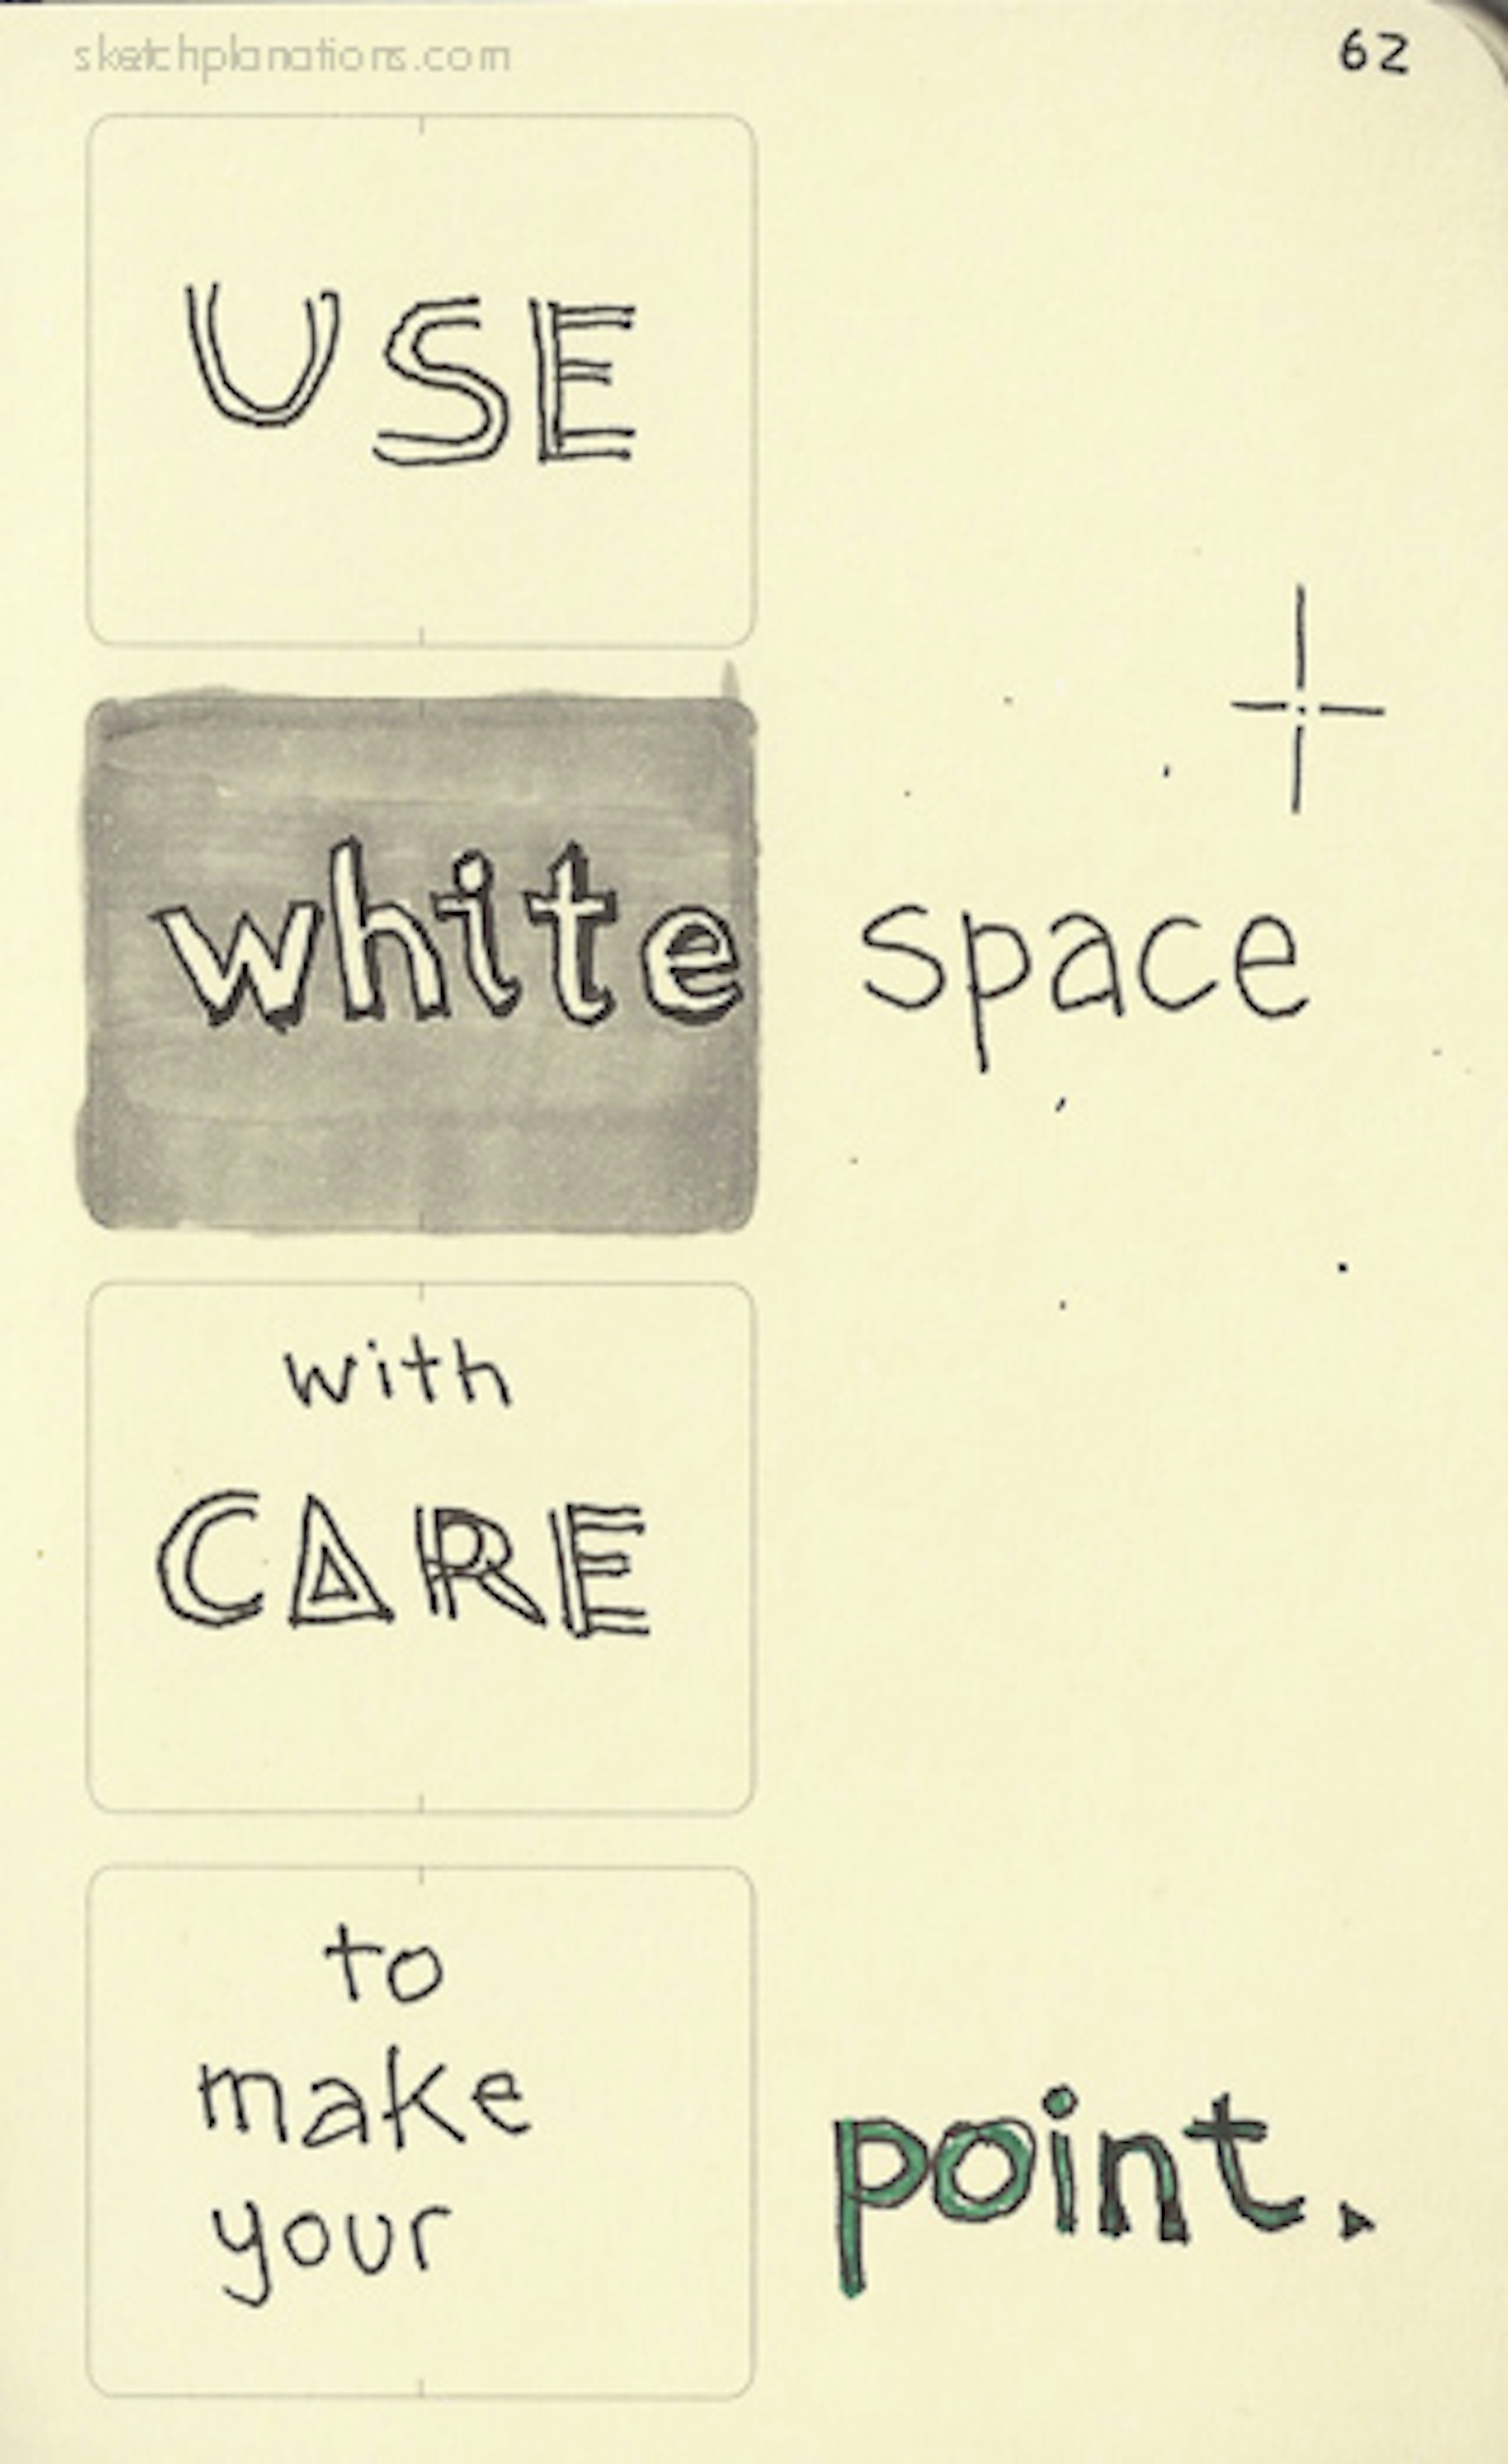 sketchplanations.com
62
USE
white space
with
CARE
to
make
your
point.